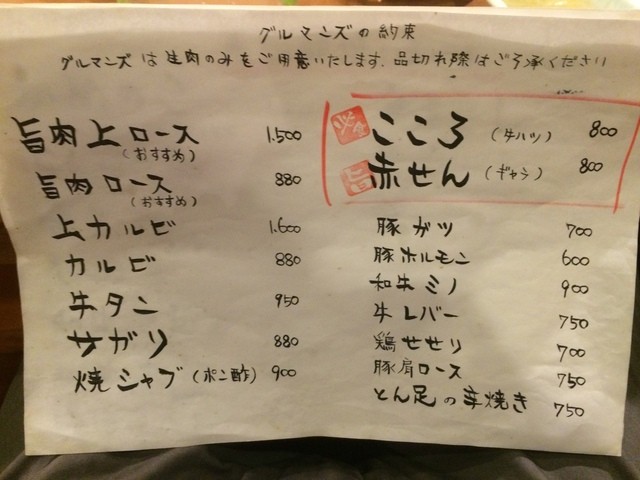 グルマンズの約束
グルマンズは生肉のみをご用意いたします、品切れ際はごろ承ください
旨肉上ロース 1.500
(おすすめ)
旨肉ロース 880
(おすすめ)
上カルビ 1.600
カルビ 880
牛タン 950
サガリ 880
焼シャブ (ポン酢) 900
必食 こころ (牛ハツ) 800
赤せん (ギャラ) 800
豚ガツ 700
豚ホルモン 600
和牛ミノ 900
牛レバー 750
鶏せせり 700
豚肩ロース 750
とん足の辛焼き 750